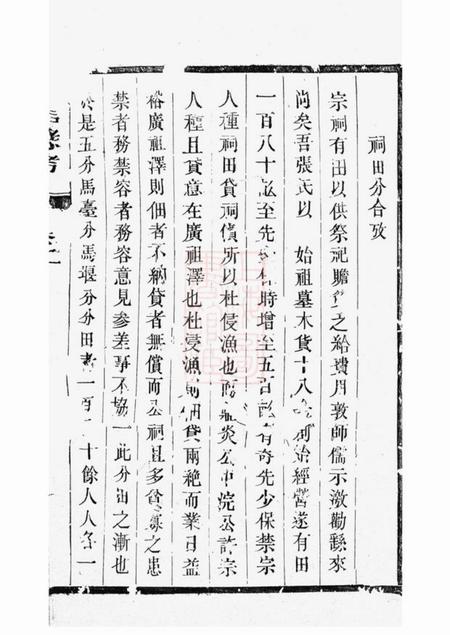 祠田分合攷
宗祠有田以供祭祀贍之給費用敦師儒示激勸繇來
尚矣吾張氏以始祖墓木貨十八始經營遂有田
一百八十畝至先時增至五百畝有奇先少保禁宗
人種祠田貸祠債所以杜侵漁也炎公中浣公許宗
人種且貸意在廣祖澤也杜侵漁則佃貸兩絶而業日益
裕廣祖澤則佃者不納貸者無償而公祠且多之患
禁者務禁容者務容意見參差爭不協此分田之漸也
於是五分馬臺分馬堰分分田者一百十餘人人各一